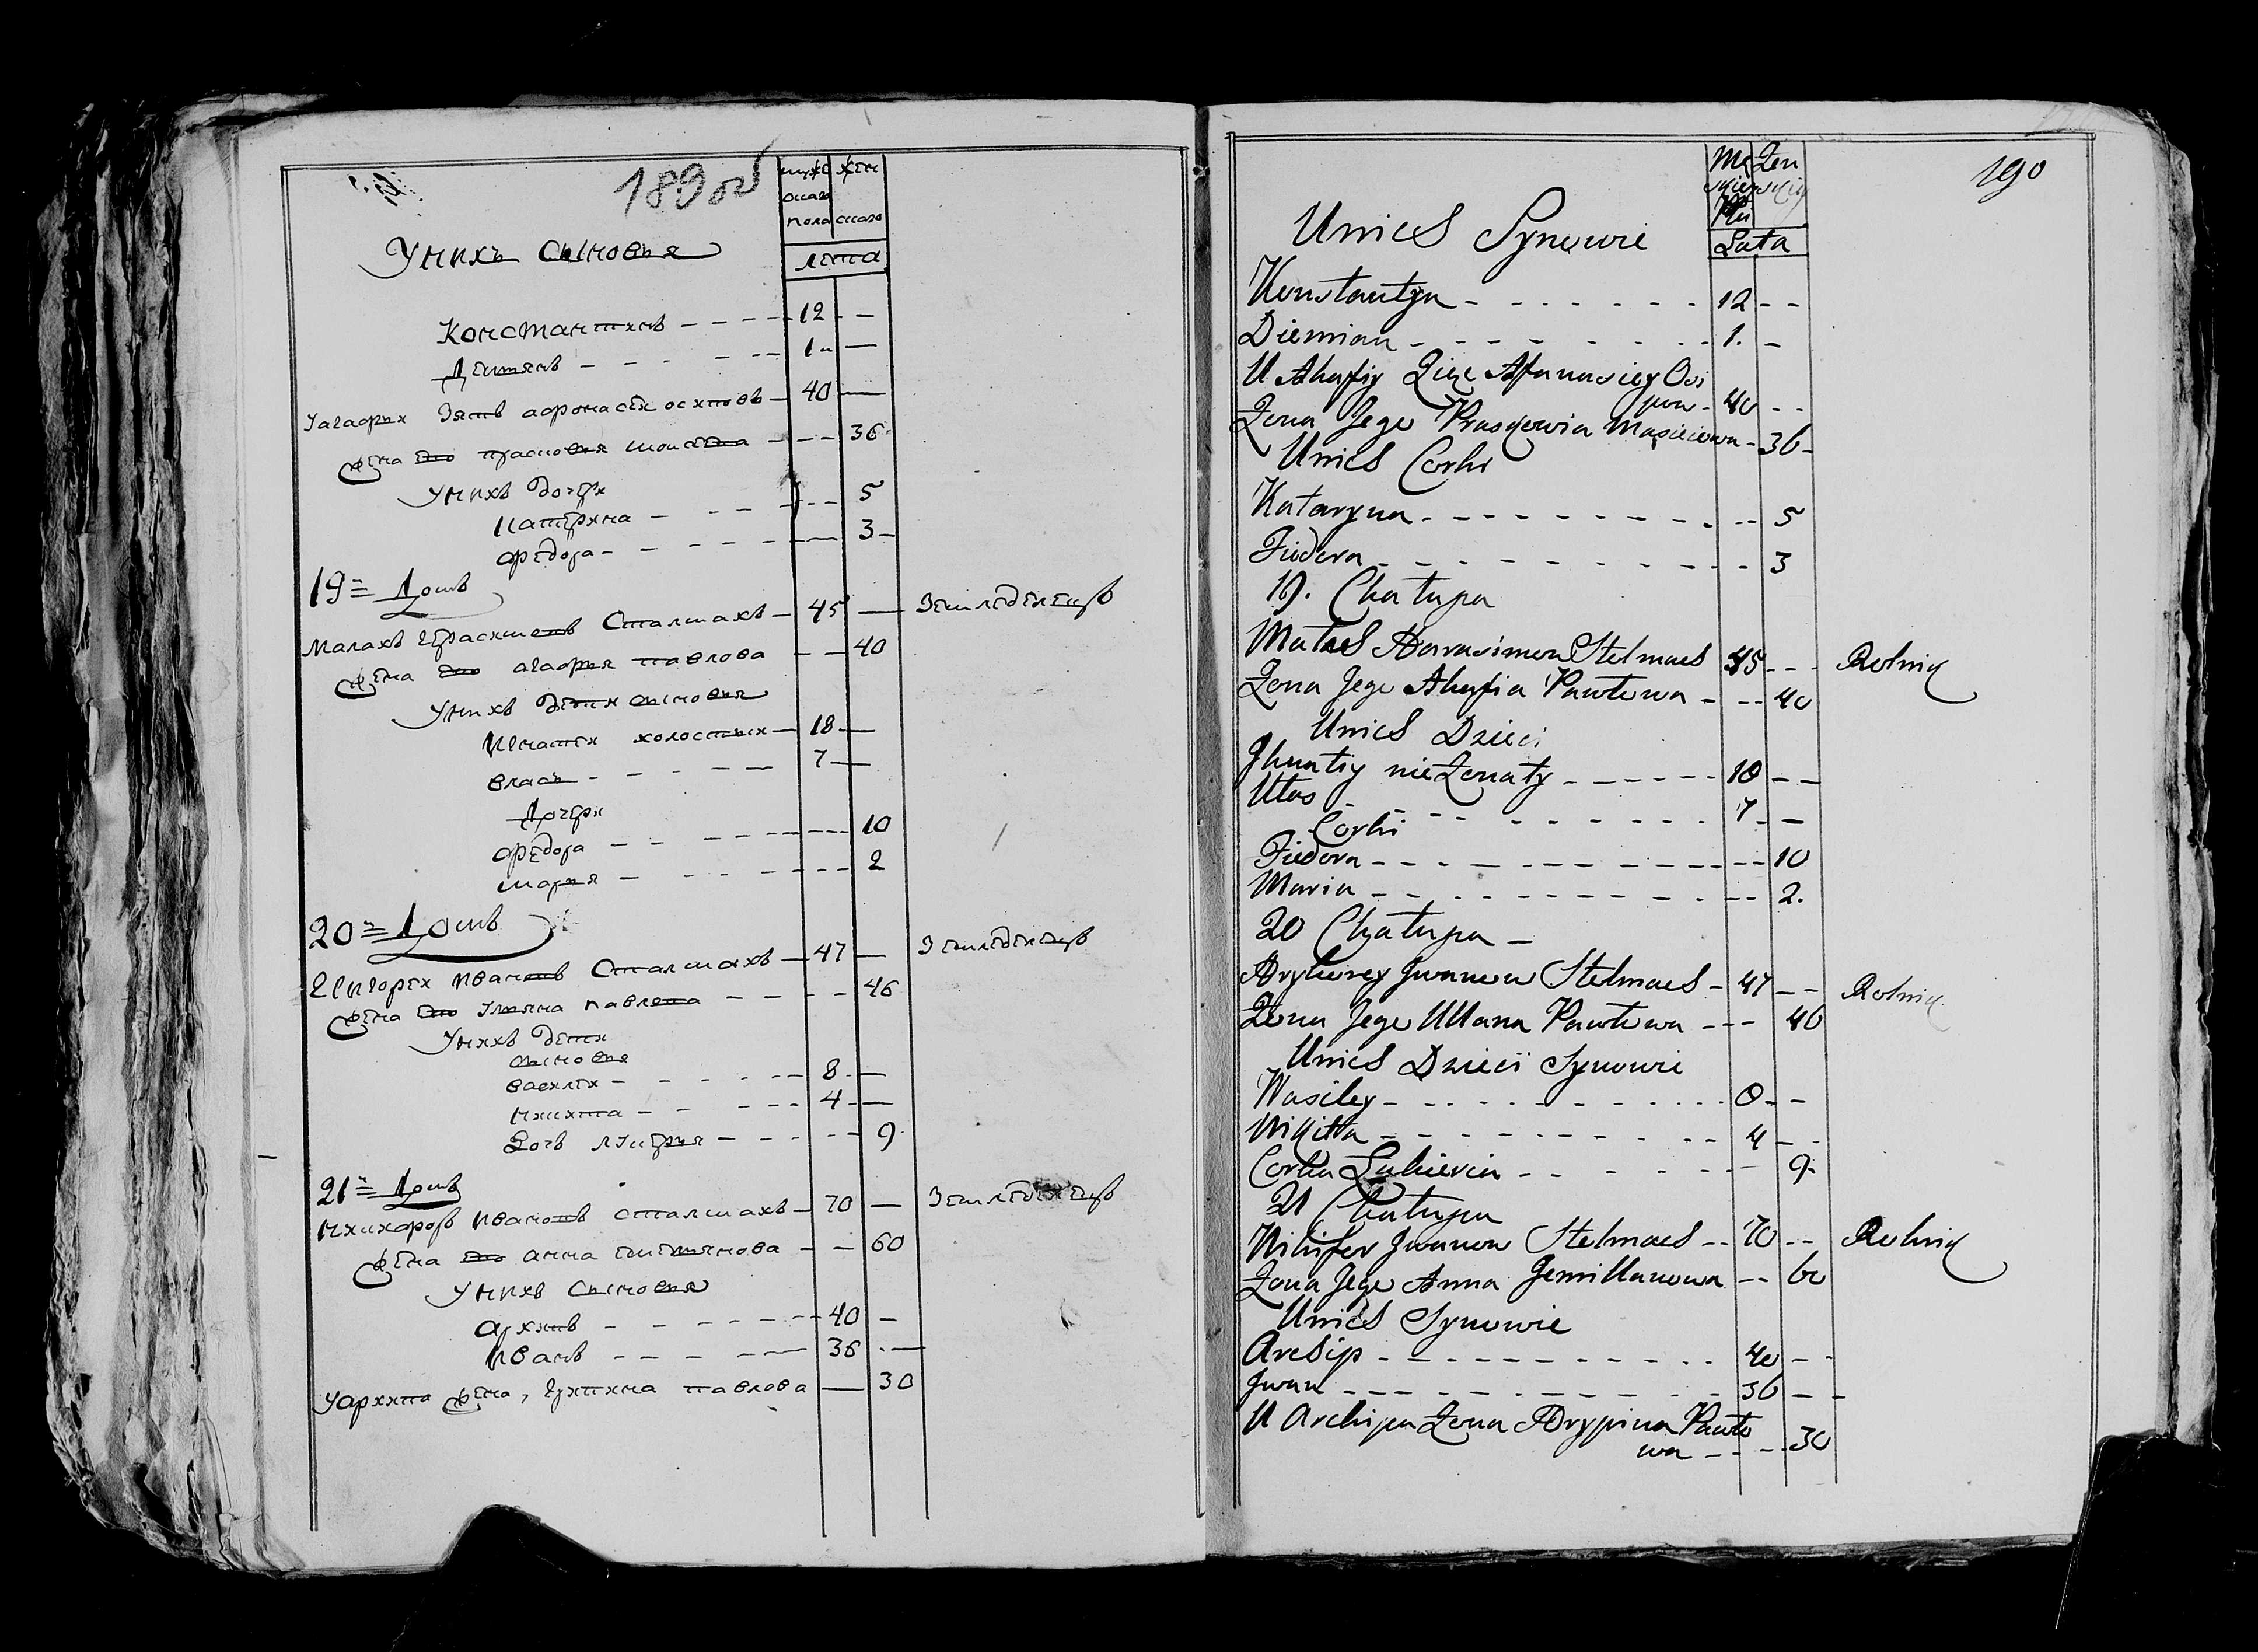 189 об
мужескаго пола
женскаго
лета
Унихъ сыновья
Константинъ - - - - 12 - -
Демянъ - - - - 1 - -
Уагафіи Зять афонасеи осиповъ - 40 -
жена Его прасковья моисеева - - - 36
Унихъ дочери
катерина - - - - 5
федора - - - - 3 -
19 = Домъ
Малахъ Герасимовъ Сталмахъ - 45 - Земледелецъ
жена Его агафия павлова - - 40
Унихъ дети сыновья
Игнатеи холостыи - 18 -
власъ - - - - 7 -
Дочери
федора - - - - 10
мария - - - - 2
20 = Домъ
Григореи Ивановъ Сталмахъ - 47 - Земледелецъ
жена Его Уляна павлова - - - - 46
Унихъ дети
сыновья
василеи - - - - 8 - -
никита - - - - 4 - -
Дочь лукерия - - - - 9
21 = Домъ
никифоръ Ивановъ сталмахъ - 70 - Земледелецъ
жена Его анна емельянова - - 60
Унихъ Сыновья
архипъ - - - - 40 -
Иванъ - - - - 36 - -
Уархипа жена, Грипина павлова - 30
190
Męskiey Płci
Żenskiey
Lata
Unich Synowie
Konstantyn - - - - 12 - -
Diemian - - - - 1. -
U Ahafiy Zięc Afanasiey Osi
pow - 40 - -
Zona Jego Praskowia Masieiowa - 36 -
Unich Corki
Kataryna - - - - 5
Fiedora - - - - 3
19. Chałupa
Małach Harasimow Stelmach 45 - - Rolnik
Zona Jego Ahafia Pawłowa - - - 40
Unich Dzieci
Jhnatiy nieżonaty - - - - 18 - -
Ułas - - - - 7 - -
Corki
Fiedora - - - - 10
Maria - - - - 2.
20 Chałupa -
Hryhorey Jwanow Stelmach - 47 - - Rolnik
Zona Jego Ullana Pawłowa - - - 46
Unich Dzieci Synowie
Wasiley - - - - 8 - -
Nikitta - - - - 4 - -
Corka Łukieria - - - - 9 -
21 Chałupa
Nikifor Jwanow Stelmach - - 70 - - Rolnik
Zona Jego Anna Jemillanowa - - 60
Unich Synowie
Archip - - - - 40 - -
Jwan - - - - 36 - -
U Archipa Zona Hrypina Pawło
wa - - - 30